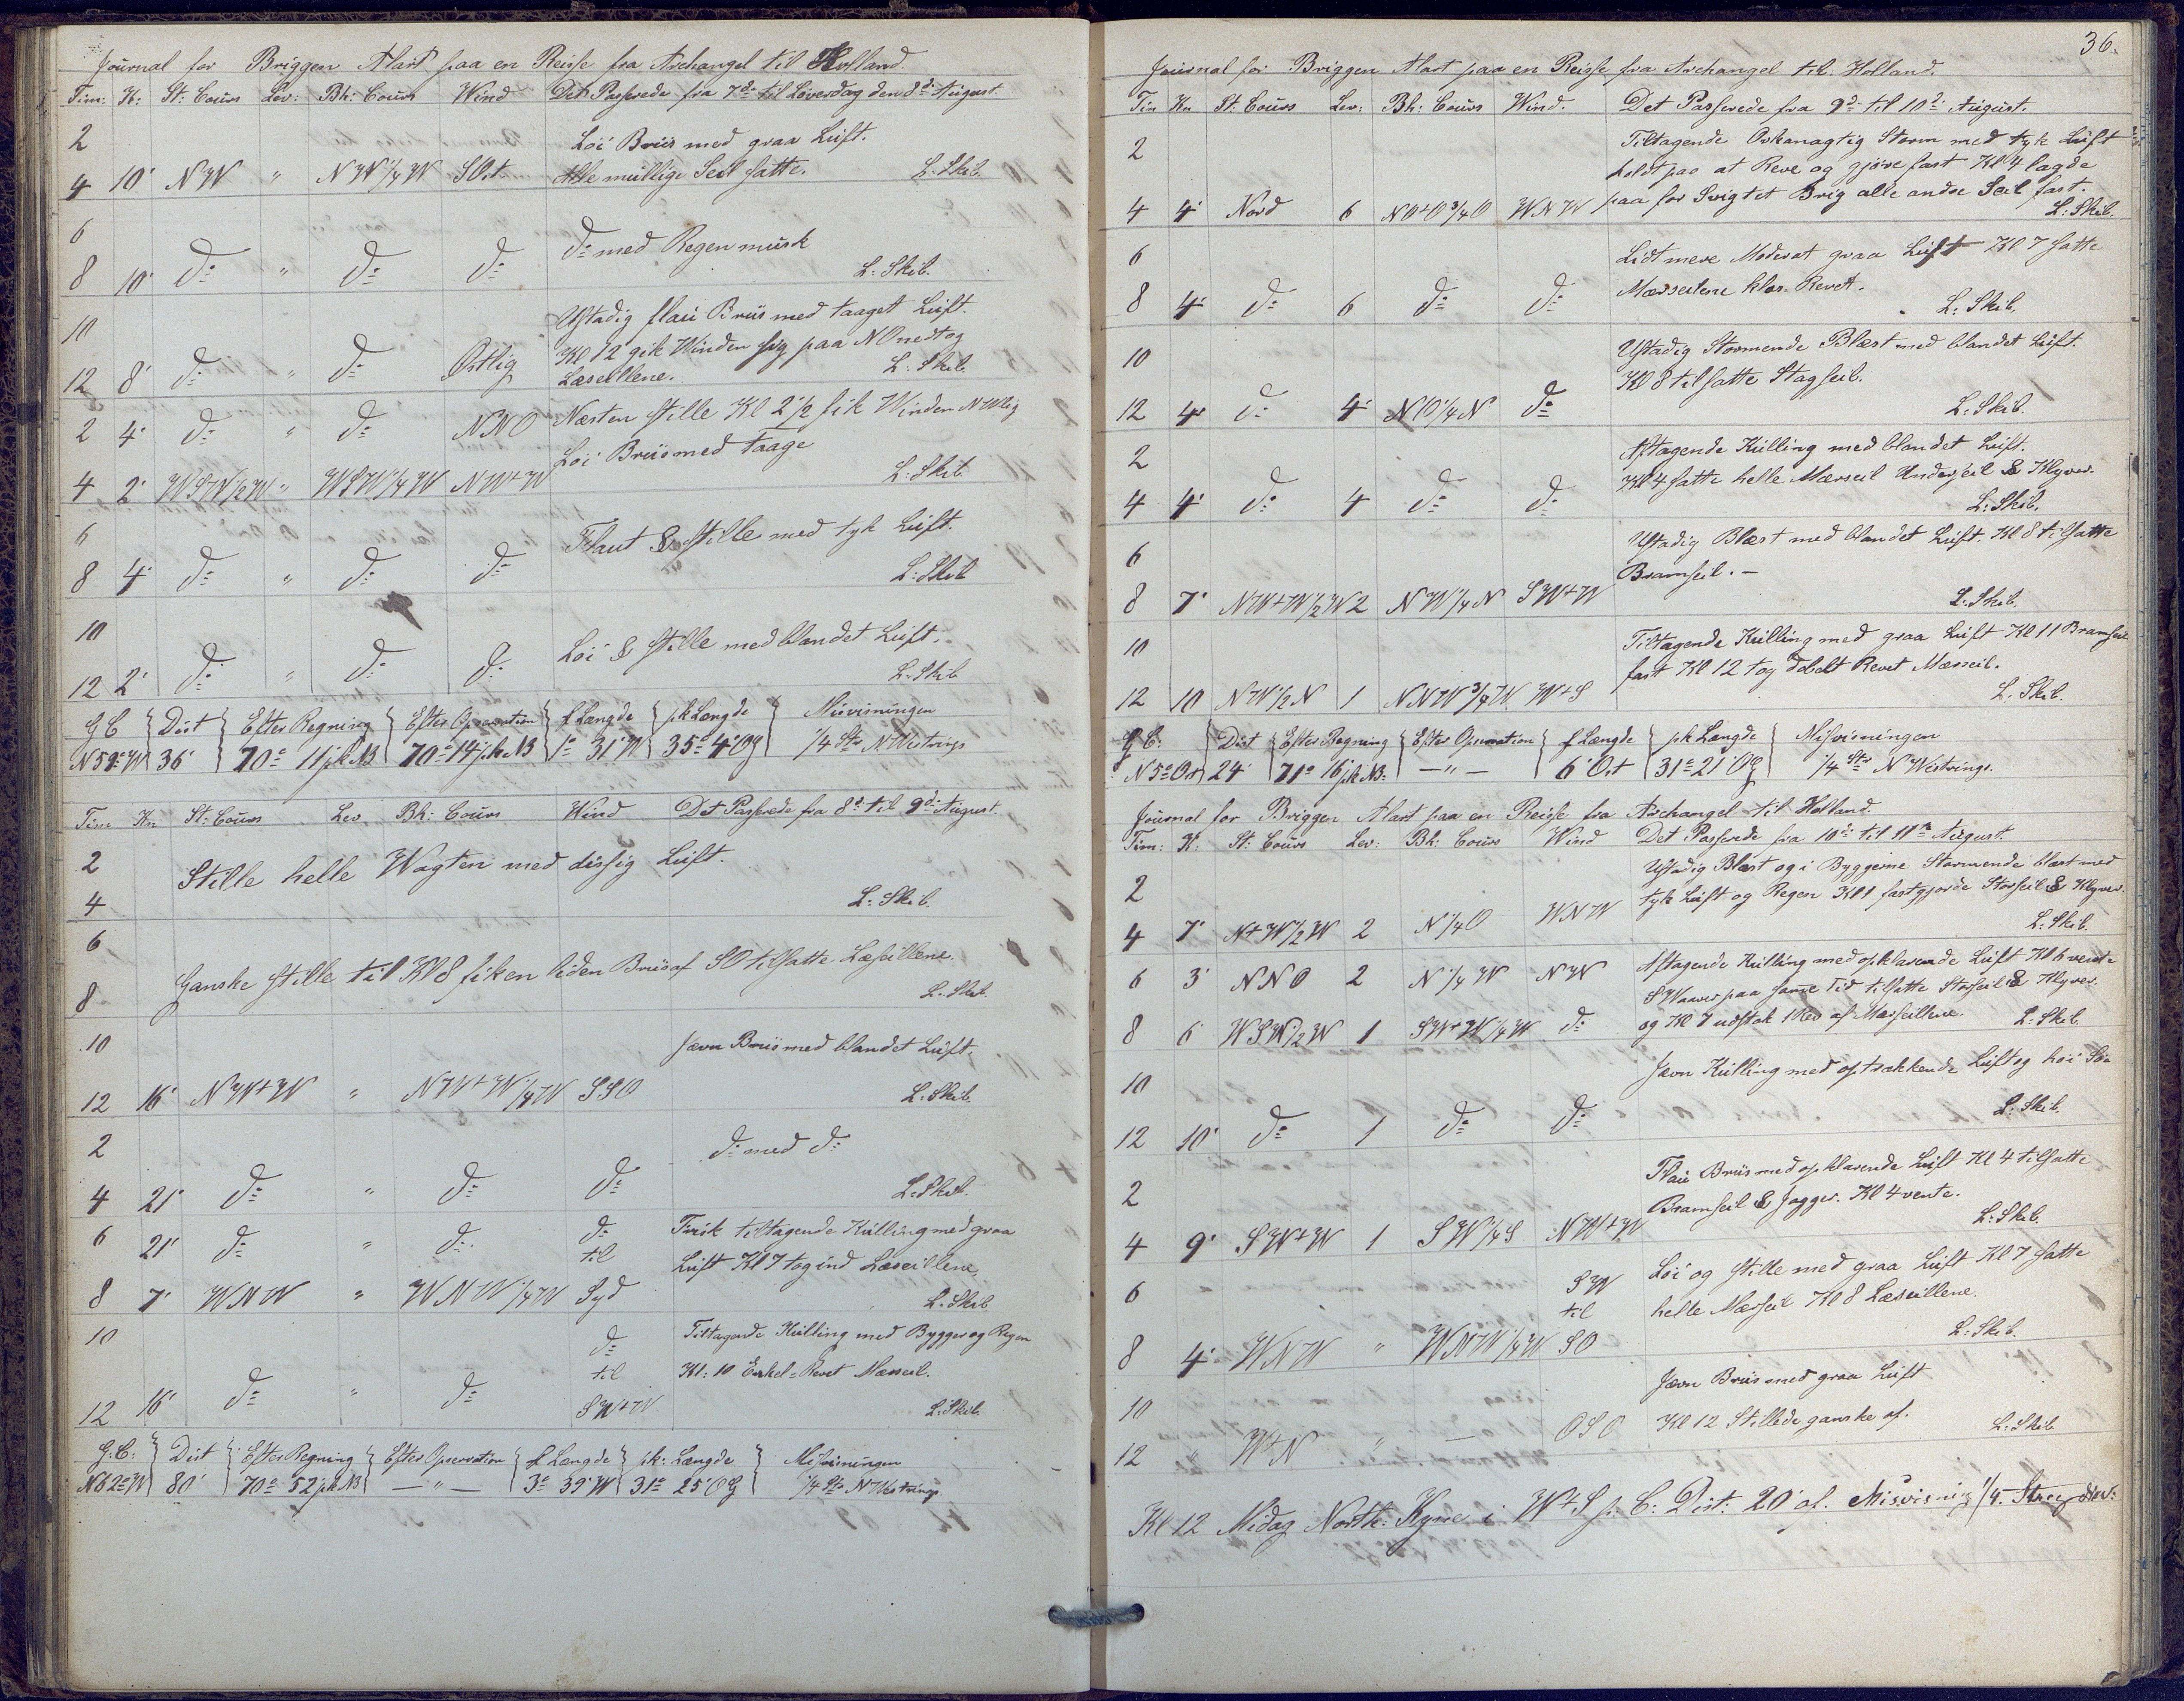 Journal for Briggen Alart paa en Reise fra Archangel til Holland.
Tim: K: St: Cours Lev: Bh: Cours Wind Det Passerede fra 7de til Löverdag den 8de August.
2 Löi Briis med graa Luft.
4 10' NW " NW 1/4 W SOst Alle mullige Seil satte. L: Skib.
6
8 10' do " do do do med Regen musk L: Skib.
10 Ustadig flau Briis med taaget Luft.
Kl 12 gik Winden sig paa NO nedtog
12 8' do " do Östlig Læseillene. L: Skib.
2 4' do " do NNO Næsten stille Kl 2 1/2 fik Winden NWlig
Löi Briis med Taage
4 2' WSW 1/2 W " WSW 1/4 W NW+W L: Skib.
6 Flaut & stille med tyk Luft.
8 4' do " do do L: Skib
10 Löi & stille med blandet Luft.
12 2' do " do do L: Skib
G C Dist Efter Regning Efter Opservation f Længde pk Længde Misvisningen
N 59° W 36' 70° 11' pk NB 70° 14' pk NB 1° 31' W 35° 4' OG 1/4 Str. NWestrings
Tim Kn St: Cours Lev Bh: Cours Wind Det Passerede fra 8de til 9de August.
2 Stille helle Wagten med dissig Luft.
4 L: Skib.
6 Ganske stille til Kl 8 fik en liden Briis af SO tilsatte Læseillene.
8 L: Skib.
10 Jævn Briis med blandet Luft.
12 16' NW+W " NW+W 1/4 W SSO L: Skib.
2 do med do
4 21' do " do do L: Skib.
6 21' do " do do Frisk tiltagende Kulling med graa
til Luft Kl 7 tog ind Læseillene.
8 7' WNW " WNW 1/4 W Syd L: Skib
10 do Tiltagende Kulling med Bygger og Regen
til Kl: 10 Enkel-Revet Mærseil.
12 16' do " do SW+W L: Skib.
G: C: Dist Efter Regning Efter Opservation f Længde pk: Længde Misvisningen
N 62° W 80' 70° 52' pk NB — " — 3° 39' W 31° 25' OG 1/4 Str NWestrings.
36.
Journal for Briggen Alart paa en Reise fra Archangel til Holland.
Tim Kn St: Cours Lev: Bh: Cours Wind. Det Passerede fra 9de til 10de August.
2 Tiltagende Orkanagtig Storm med tyk Luft
holdt paa at Reve og gjöre fast Kl 4 lagde
4 4' Nord 6 NO+O 3/4 O WNW paa for Svigtet Brig alle andre Seil fast.
L: Skib.
6 Lidt mere Moderat graa Luft Kl 7 satte
8 4' do 6 do do Mærseilene klos Revet. L: Skib.
10 Ustadig Stormende Blæst med blandet Luft.
Kl 8 tilsatte Stagseil.
12 4' do 4' NO 1/4 N do L: Skib.
2 Aftagende Kulling med blandet Luft.
Kl 4 satte helle Mærseil Underseil & Klyver.
4 4' do 4 do do L: Skib.
6 Ustadig Blæst med blandet Luft. Kl 8 tilsatte
Bramseil. —
8 7' NW+W 1/2 W 2 NW 1/4 N SW+W L: Skib.
10 Tiltagende Kulling med graa Luft Kl 11 Bramseil
fast Kl 12 tog dobelt Revet Mærseil.
12 10 NW 1/2 N 1 NNW 3/4 W W+S L: Skib.
G C: Dist Efter Regning Efter Opservation f Længde pk Længde Misvisningen
N 5° Ost 24' 71° 16' pk NB: — " — 6' Ost 31° 21' OG 1/4 Str NWestrings.
Journal for Briggen Alart paa en Reise fra Archangel til Holland.
Tim: K: St: Cours Lev: Bh: Cours Wind Det Passerede fra 10de til 11te August.
2 Ustadig Blæst og i Byggerne Stormende blæst med
tyk Luft og Regen Kl 1 fastgjorde Storseil & Klyver.
4 7' N+W 1/2 W 2 N 1/4 O WNW L: Skib.
6 3' NNO 2 N 1/4 W NW Aftagende Kulling med opklarende Luft Kl 6 vente
SWaaver paa same Tid tilsatte Storseil & Klyver.
8 6' WSW 1/2 W 1 SW+W 1/4 W do og Kl 7 udstak 1 Rev af Mærseillene. L: Skib
10 Jævn Kulling med optrækkende Luft og höi Sö
12 10' do 1 do do L: Skib.
2 Flau Briis med opklarende Luft Kl 4 tilsatte
Bramseil & Jagger. Kl 4 vente.
4 9' SW+W 1 SW 1/4 S NW+W L: Skib.
6 SW Löi og stille med graa Luft Kl 7 satte
til helle Mærseil Kl 8 Læseillene.
8 4' WNW " WNW 1/4 W SO L: Skib.
10 Jævn Briis med graa Luft
12 " W+N " — OSO Kl 12 Stillede ganske af. L: Skib
Kl 12 Midag North: Kyne i W+S p. C: Dist: 20' af. Misvisning 1/4 Streg